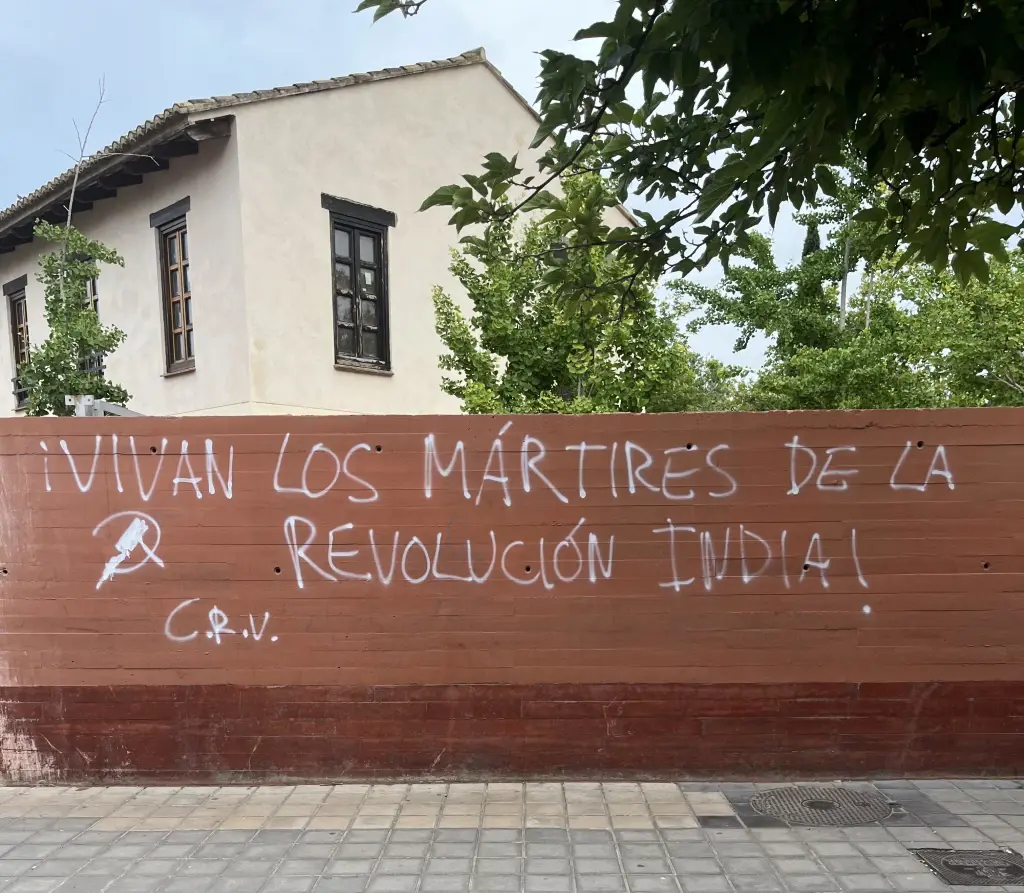 ¡VIVAN LOS MÁRTIRES DE LA
REVOLUCIÓN INDIA!
C.R.V.